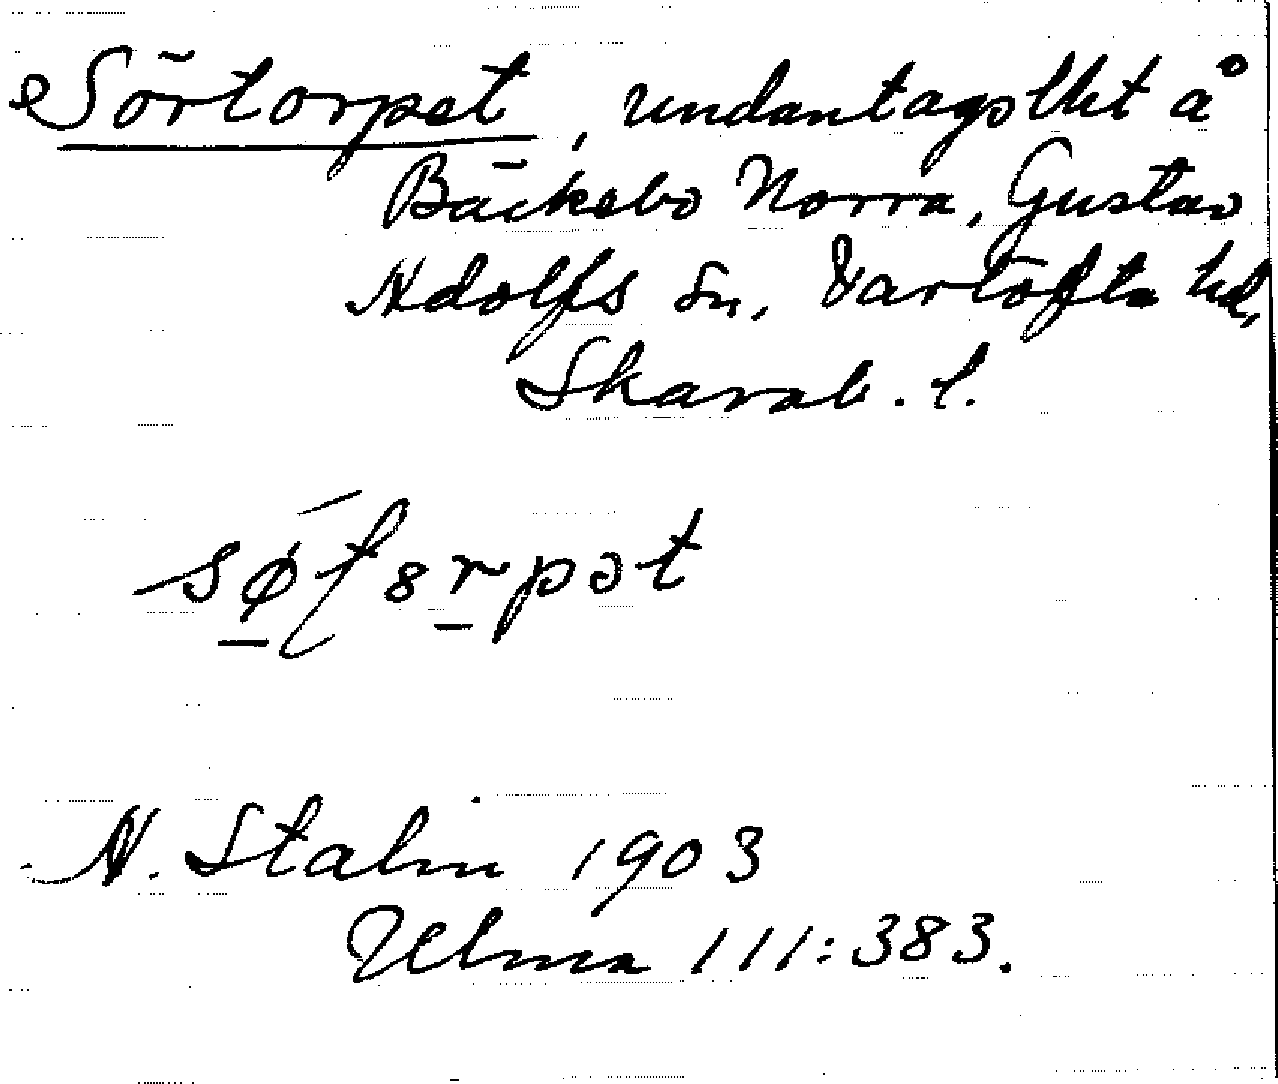 Sörtorpet, undantagslht å
Bäckebo Norra, Gustav
Adolfs sn, Vartofta hd,
Skarab. l.
søʈ8rpət
A. Stalin 1903
Ulma 111:383.